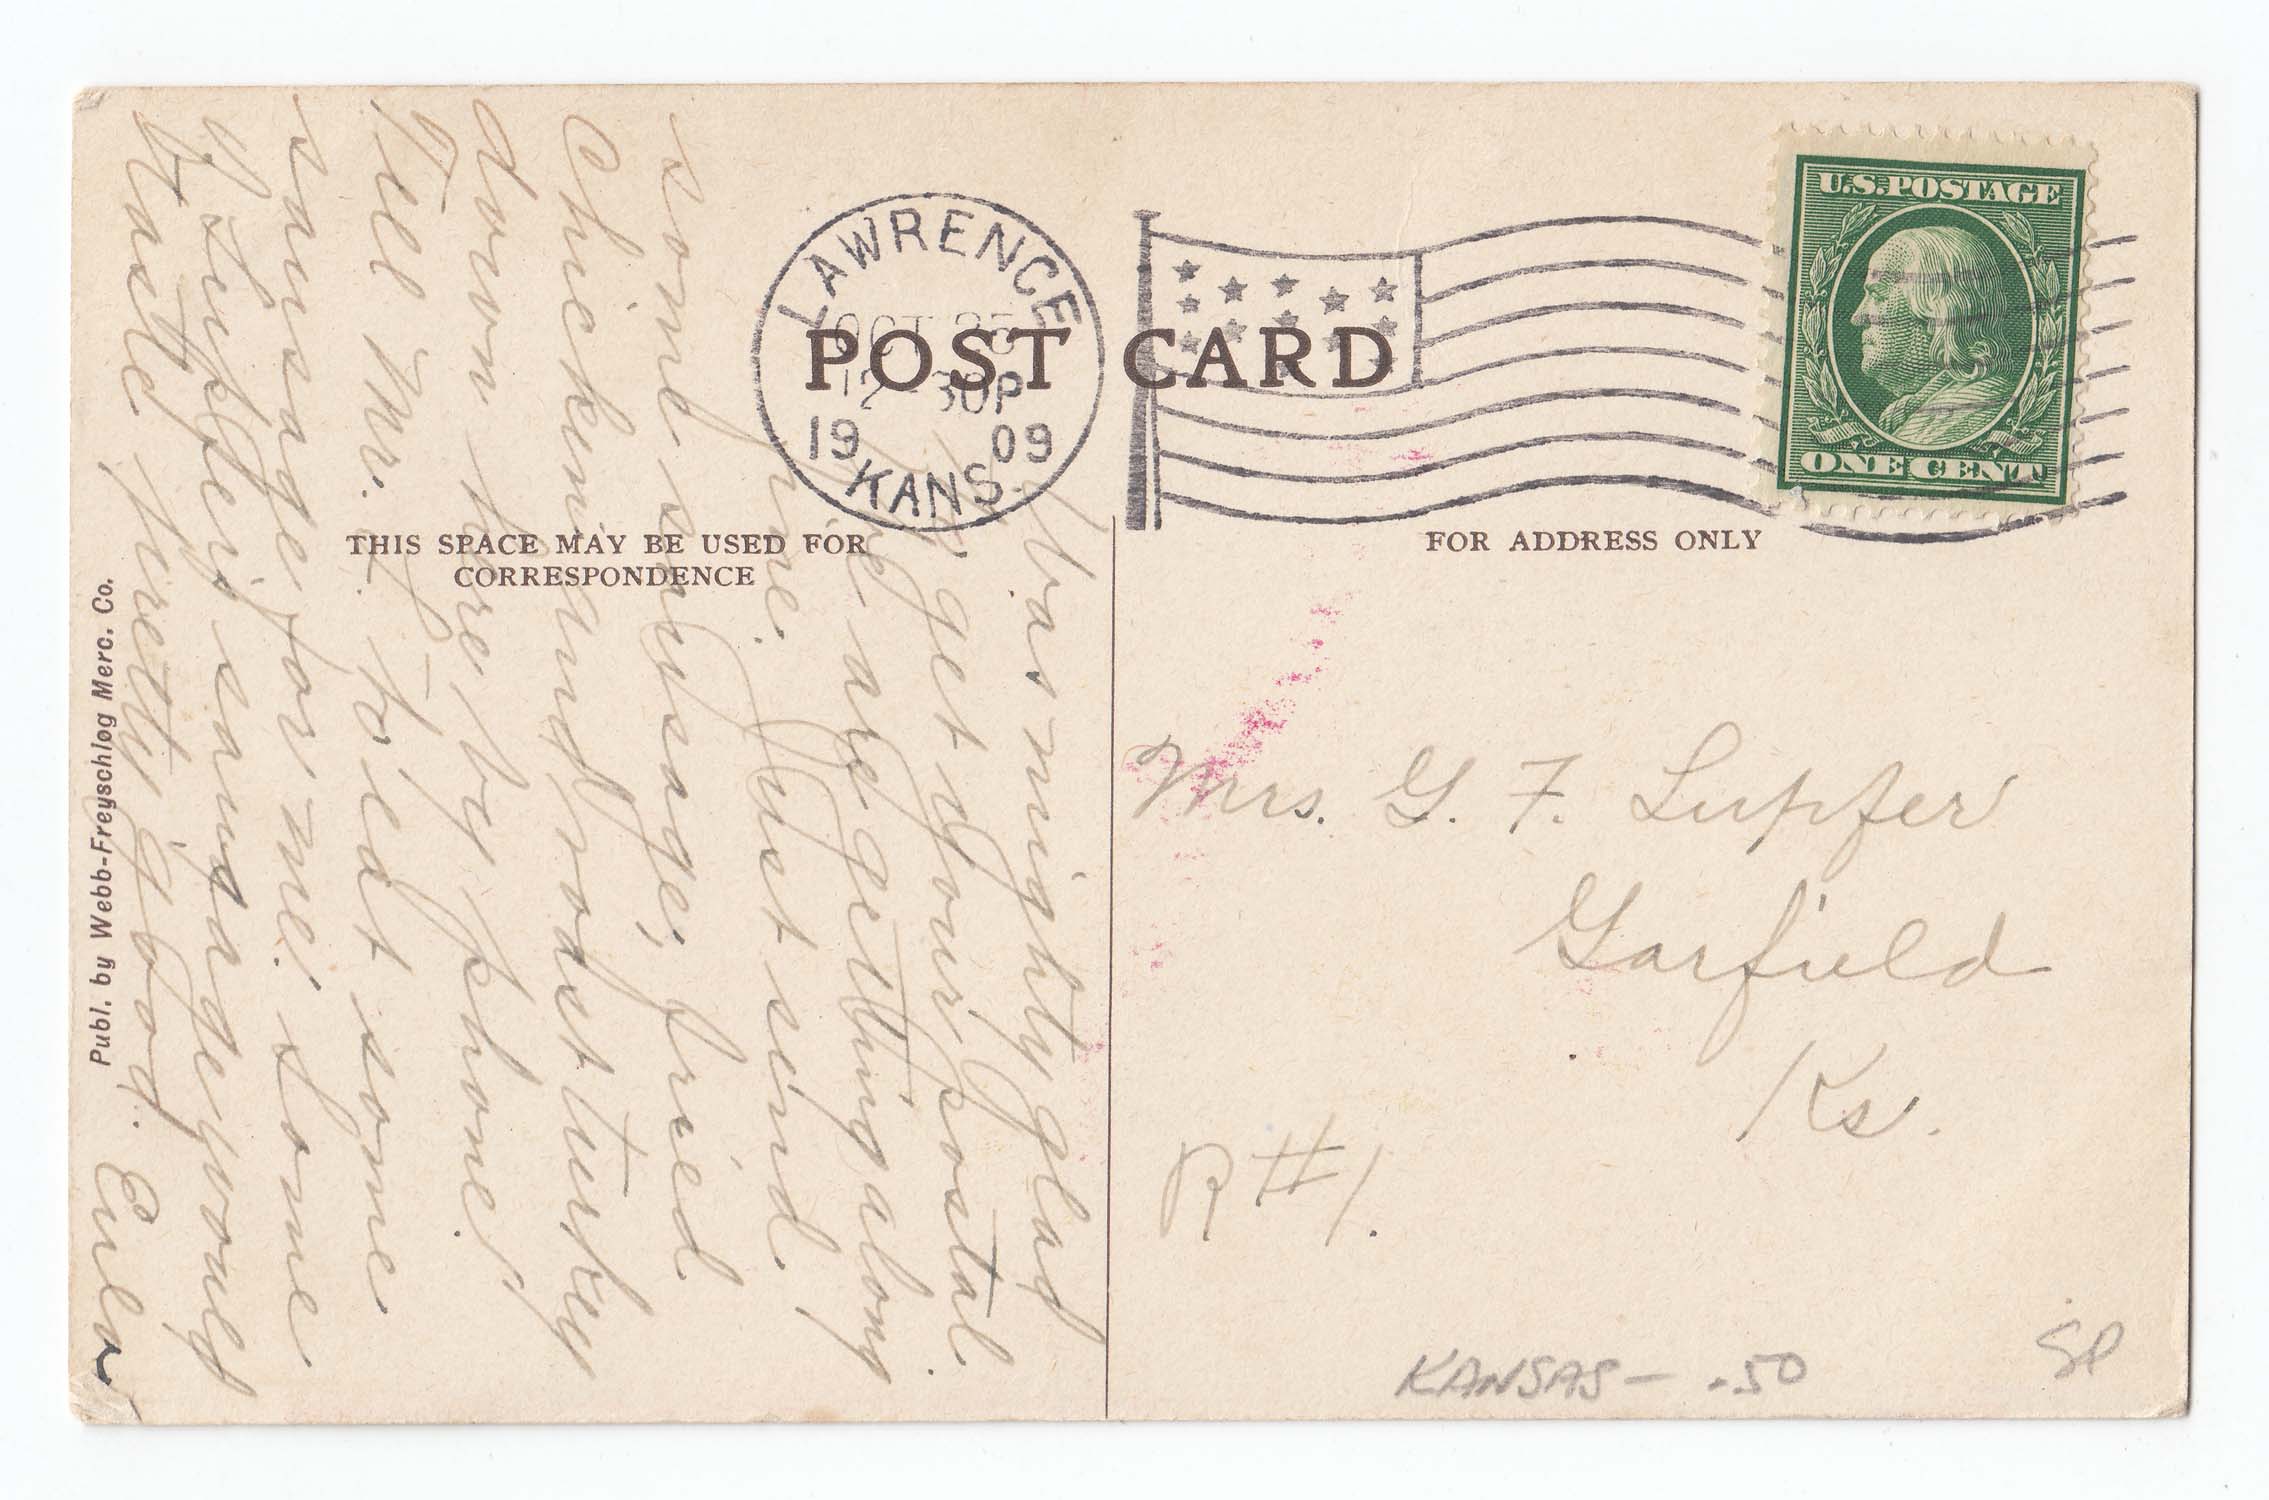 LAWRENCE
OCT 25
12-30P
19 09
KANS.
POST CARD
U.S. POSTAGE
ONE CENT
THIS SPACE MAY BE USED FOR
CORRESPONDENCE
FOR ADDRESS ONLY
Was mighty glad
to get your postal.
We are getting along
fine. Just send
some sausage, fried
chicken and roast turkey
down here by phone,
Tell Mr. T. to eat some
sausage for me. Some
of Lupfer's sausage would
taste pretty good. Eula
Mrs. G. F. Lupfer
Garfield
Ks.
R #1.
Publ. by Webb-Freyschlog Merc. Co.
KANSAS - .50
SP